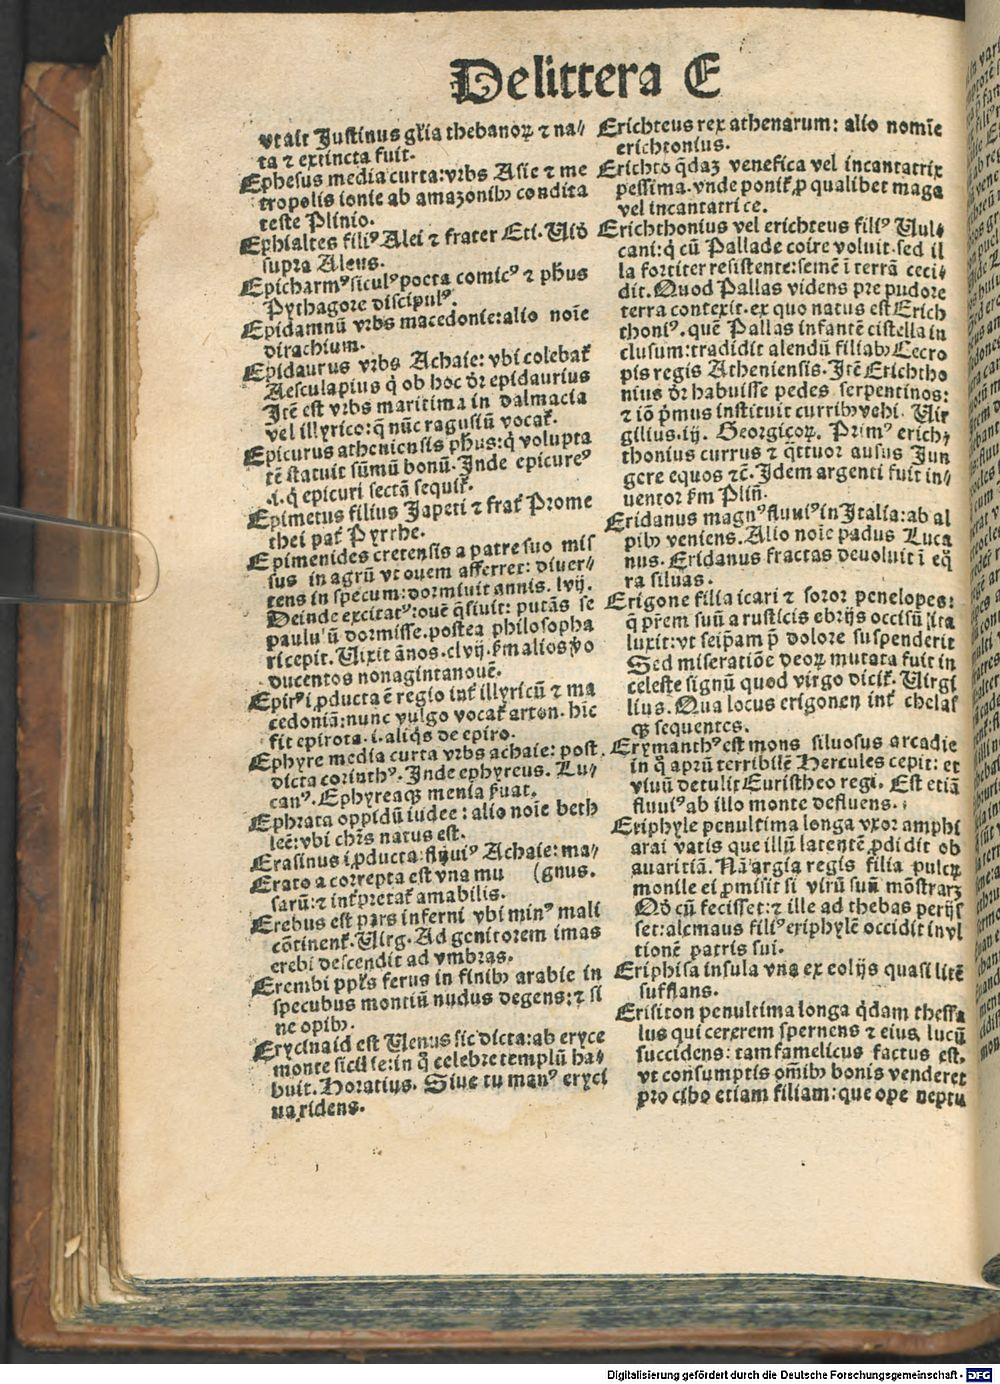 De littera E
vt ait Justinus gl̄ia thebanoꝝ ⁊ na⸗
ta ⁊ extincta fuit.
Ephesus media curta: vrbs Asie ⁊ me
tropolis ionie ab amazonibꝰ condita
teste Plinio.
Ephialtes filiꝰ Aloi ⁊ frater Eti. Uid̄
supra Aleus.
Epicharmꝰ siculꝰ poeta comicꝰ ⁊ ph̄us
Pythagore discipulꝰ.
Epidamnū vrbs macedonie: alio noīe
dirachium.
Epidaurus vrbs Achaie: vbi colebat̄
Aesculapius q̄ ob hoc dr̄ epidaurius
Itē est vrbs maritima in dalmacia
vel illyrico: q̄ nūc ragusiū vocat̄.
Epicurus atheniensis ph̄us: q̄ volupta
tē statuit sūmū bonū. Inde epicureꝰ
.i. q̄ epicuri sectā sequit̄.
Epimetus filius Japeti ⁊ frat̄ Prome
thei pat̄ Pyrrhe.
Epimenides cretensis a patre suo mis
sus in agrū vt ouem afferret: diuer⸗
tens in specum: dormiuit annis. lvij.
Deinde excitatꝰ: ouē q̄siuit: putās se
paulu'ū dormisse. postea philosopha
ri cepit. Uixit ānos. clvij. s̄m alios vo
ducentos nonagintanouē.
Epirꝰ i ꝓducta ē regio int̄ illyricū ⁊ ma
cedoniā: nunc vulgo vocat̄ arton. hīc
fit epirota .i. aliq̄s de epiro.
Ephyre media curta vrbs achaie: post
dicta corinthꝰ. Inde ephyreus. Lu⸗
canꝰ. Ephyreaqꝫ menia s̄uat.
Ephrata oppidū iudee: alio noīe beth
leē: vbi chr̄s natus est.
Erasinus i ꝓducta: fluuiꝰ Achaie: ma⸗
Erato a correpta est vna mu (gnus.
sarū: ⁊ int̄pretat̄ amabilis.
Erebus est pars inferni vbi minꝰ mali
cōtinent̄. Uirg. Ad genitorem imas
erebi descendit ad vmbras.
Erembi pp̄ls ferus in finibꝰ arabie in
specubus montiū nudus degens: ⁊ si
ne opibꝰ.
Erycina id est Uenus sic dicta: ab eryce
monte sicilie: in q̄ celebre templū ha⸗
buit. Horatius. Siue tu manꝰ eryci
na ridens.
Erichteus rex athenarum: alio nomīe
erichtonius.
Erichto q̄dā venefica vel incantatrix
pessima. vnde ponit̄ ꝓ qualibet maga
vel incantatrice.
Erichthonius vel erichteus filiꝰ Uul⸗
cani: q̄ cū Pallade coire voluit. sed il
la fortiter resistente: semē ī terrā ceci⸗
dit. Quod Pallas videns pre pudore
terra contexit. ex quo natus est Erich
thoniꝰ. quē Pallas infantē cistella in
clusum: tradidit alendū filiabꝰ Cecro
pis regis Atheniensis. Itē Erichtho
nius dr̄ habuisse pedes serpentinos:
⁊ iō p̄mus instituit curribꝰ vehi. Uir
gilius. iij. Georgicoꝝ. Primꝰ erich⸗
thonius currus ⁊ q̄ttuor ausus Jun
gere equos ⁊c̄. Idem argenti fuit in⸗
uentor s̄m Plin̄.
Eridanus magnꝰ fluuiꝰ in Italia: ab al
pibꝰ veniens. Alio noīe padus Luca
nus. Eridanus fractas deuoluit ī eq̄
ra siluas.
Erigone filia icari ⁊ soror penelopes:
q̄ pr̄em suū a rusticis ebrijs occisū ita
luxit: vt seip̄am p̄ dolore suspenderit
Sed miseratiōe deoꝝ mutata fuit in
celeste signū quod virgo dicit̄. Uirgi
lius. Qua locus erigonen int̄ chelas
qꝫ sequentes.
Erymanthꝰ est mons siluosus arcadie
in q̄ aprū terribilē Hercules cepit: et
viuū detulit Euristheo regi. Est etiā
fluuiꝰ ab illo monte defluens.
Eriphyle penultima longa vxor amphi
arai vatis que illū latentē ꝓdidit ob
auaritiā. Nā argia regis filia pulcꝝ
monile ei ꝓmisit si virū suū mōstraꝫ
Qd̄ cū fecisset: ⁊ ille ad thebas perijs
set: alcmaus filiꝰ eriphylē occidit in vl
tionē patris sui.
Eriphisa insula vna ex eolijs quasi litē
sufflans.
Erisiton penultima longa q̄dam thessa
lus qui cererem spernens ⁊ eius lucū
succidens: tam famelicus factus est.
vt consumptis om̄ibꝰ bonis venderet
pro cibo etiam filiam: que ope neptu
Digitalisierung gefördert durch die Deutsche Forschungsgemeinschaft - DFG